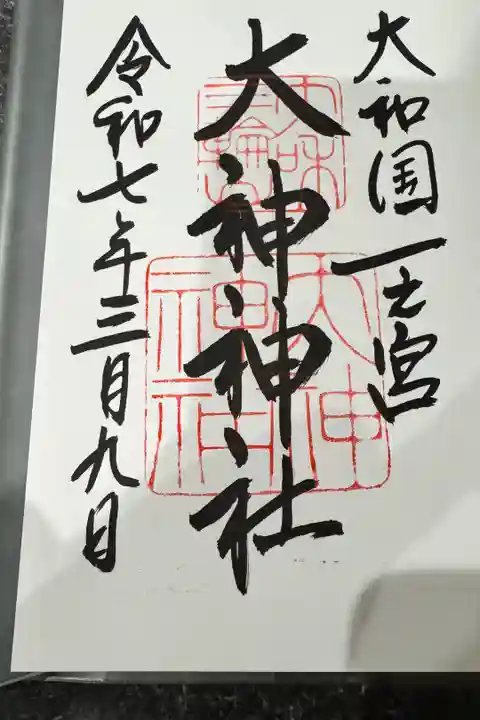 大和国一之宮
大神神社
令和七年三月九日
大神神社